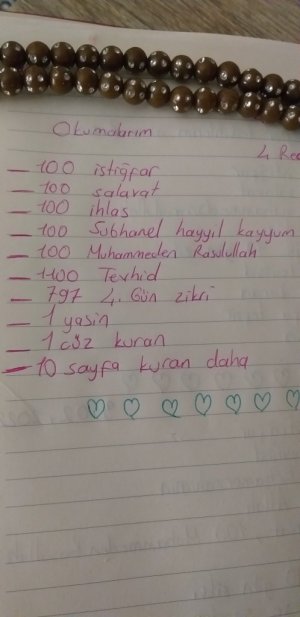 Okumalarım
4 Rec
100 istiğfar
100 salavat
100 ihlas
100 Sübhanel hayyıl kayyum
100 Muhammeden Rasulullah
1100 Tevhid
797 4. Gün zikri
1 yasin
1 cüz kuran
10 sayfa kuran daha